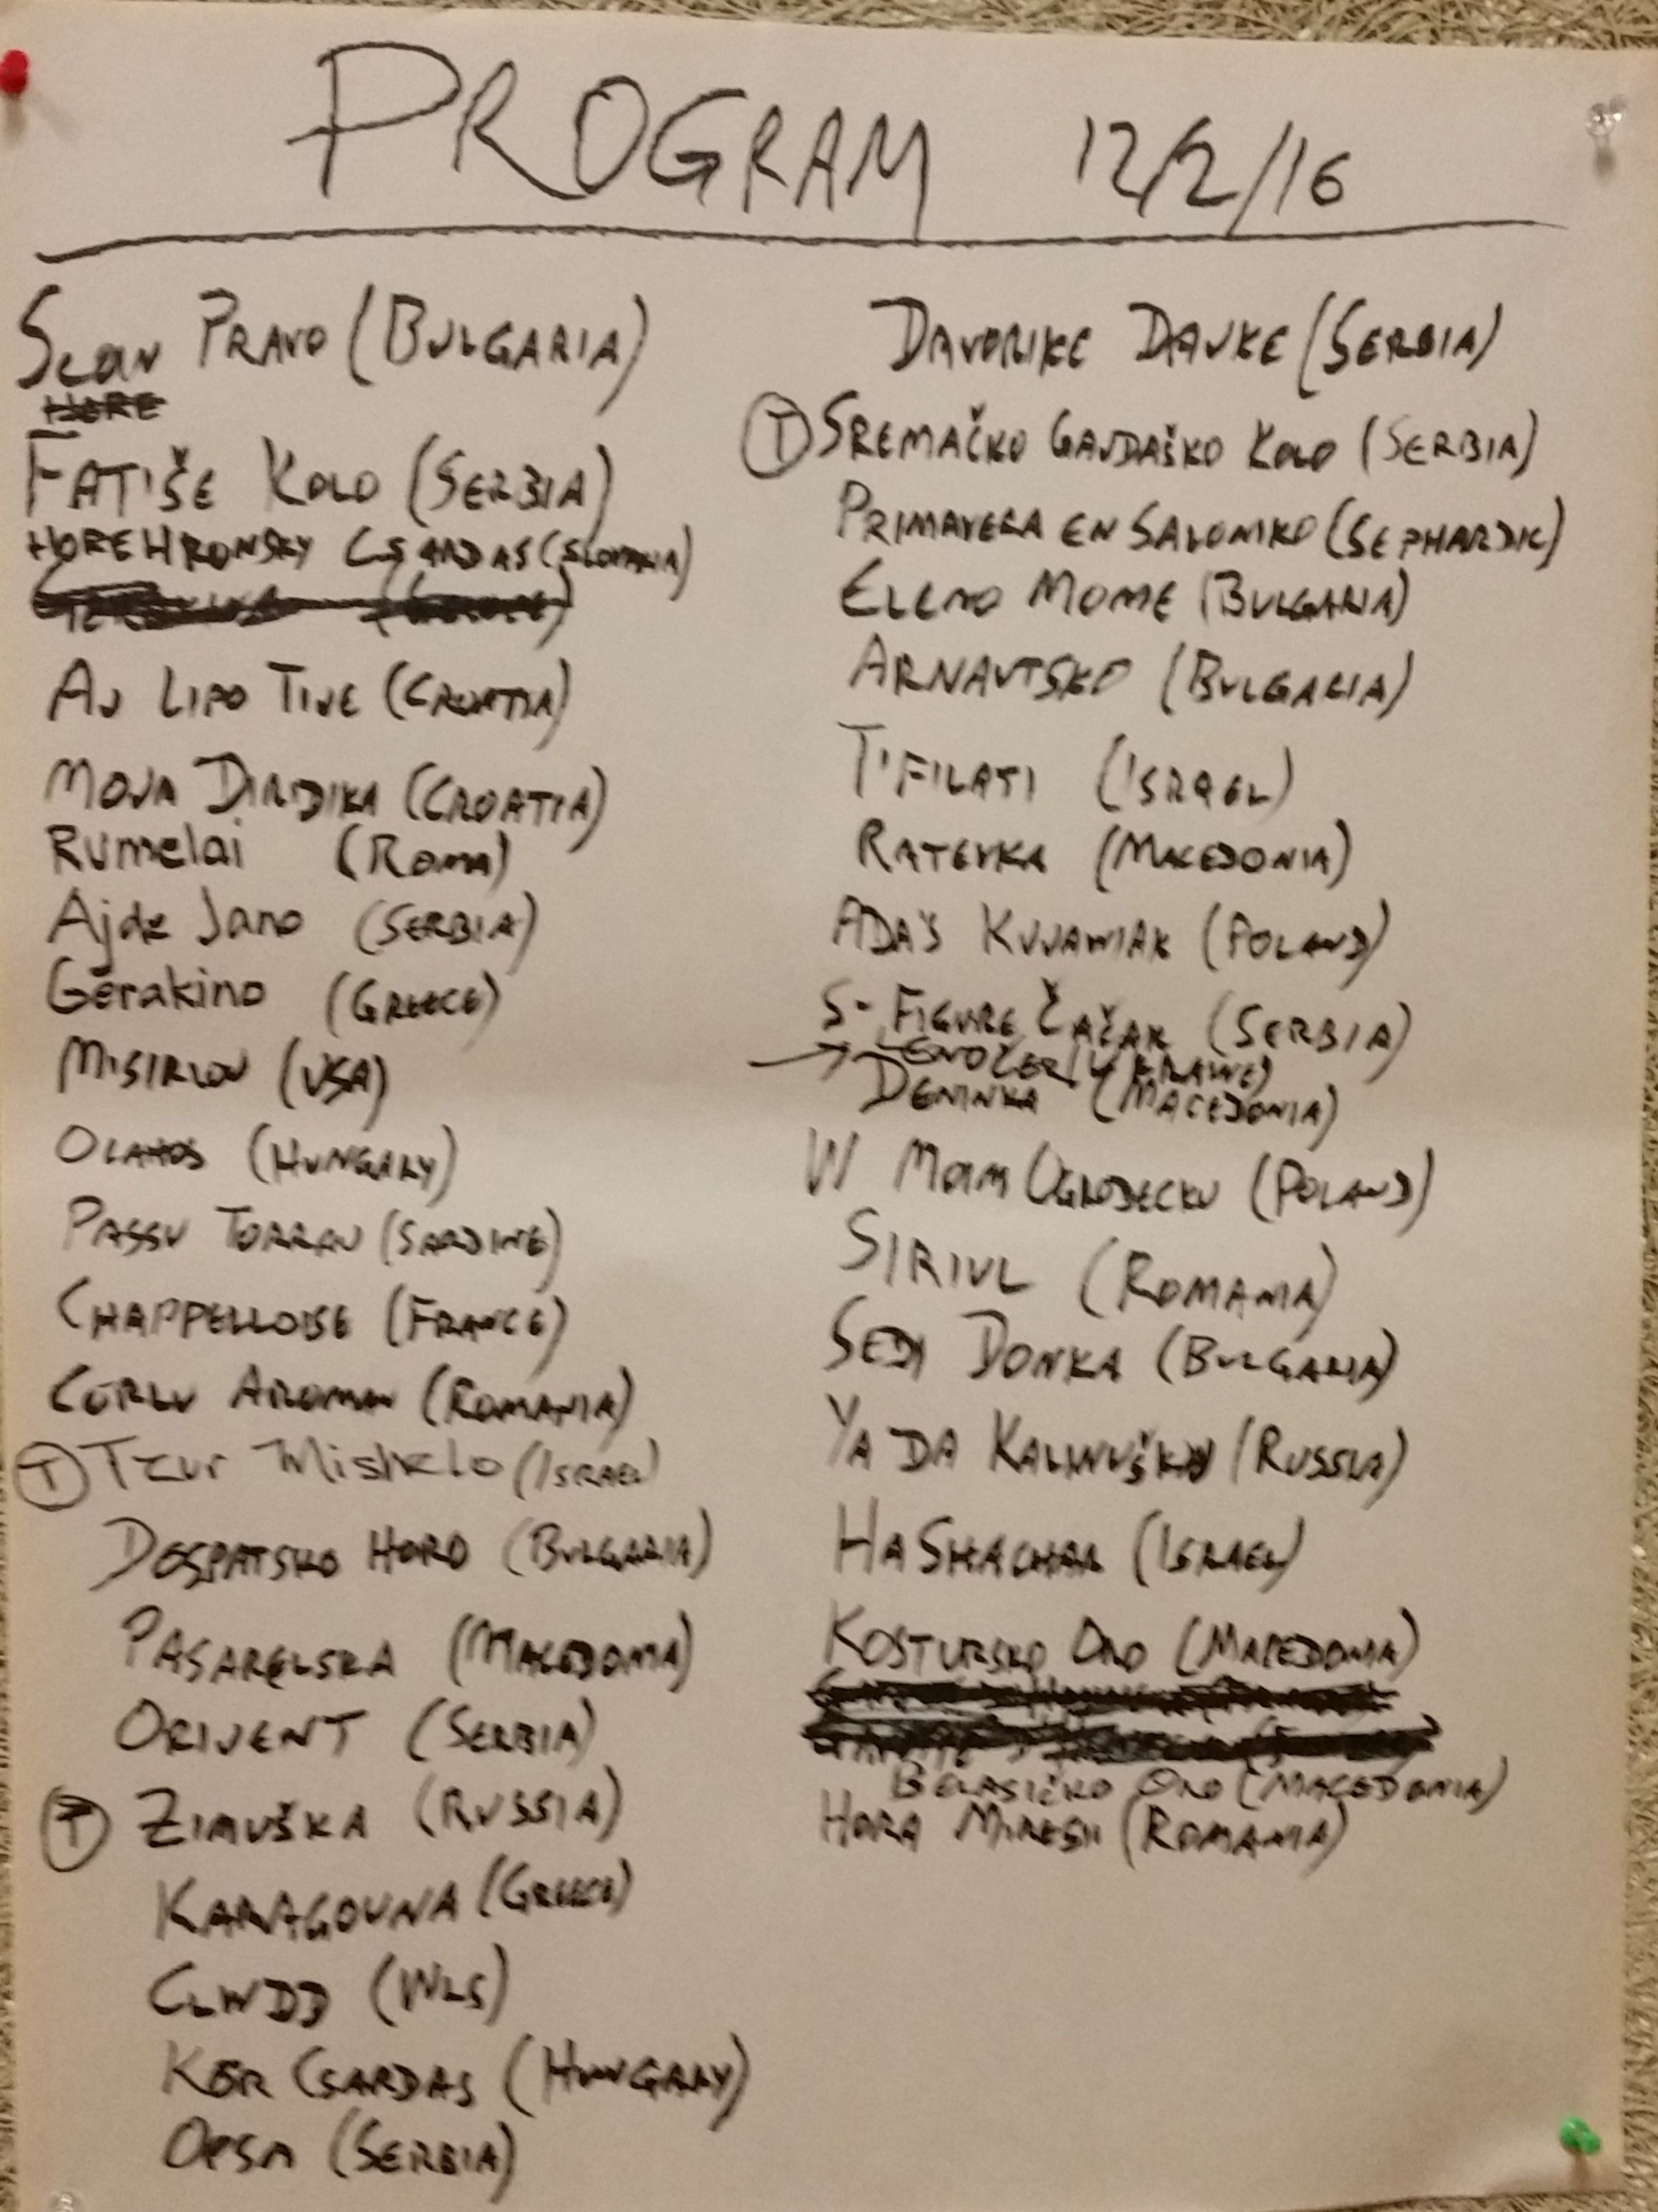 PROGRAM 12/2/16
Sean PRAVO (BULGARIA)
HORE
FATIŠE KOLO (SERBIA)
HOREHRONSKY CSARDAS (SLOVAKIA)
AJ LIPO TIJE (CROATIA)
MOJA DIRIDIKA (CROATIA)
Rumelai (ROMA)
Ajde Jano (SERBIA)
Gerakino (GREECE)
MISIRLOU (USA)
OLAHOS (HUNGARY)
PASSU TORRAU (SARDINE)
CHAPPELLOISE (FRANCE)
CORLU AROMAN (ROMANIA)
T Tzur Mishelo (ISRAEL)
DOSPATSKO HORO (BULGARIA)
PASARELSKA (MACEDONIA)
ORIJENT (SERBIA)
T ZIMUŠKA (RUSSIA)
KARAGOUNA (GREECE)
CLWDD (WLS)
KÖR CSARDAS (HUNGARY)
OPSA (SERBIA)
DAVORIKE DAVKE (SERBIA)
T SREMAČKO GAJDAŠKO KOLO (SERBIA)
PRIMAVERA EN SALONIKO (SEPHARDIC)
ELENO MOME (BULGARIA)
ARNAUTSKO (BULGARIA)
T'FILATI (ISRAEL)
RATEVKA (MACEDONIA)
ADA'S KUJAWIAK (POLAND)
5-FIGURE ČAČAK (SERBIA)
DENINKA (MACEDONIA)
W Mom OGRODECKU (POLAND)
SIRIUL (ROMANIA)
SEDI DONKA (BULGARIA)
YA DA KALINUŠKU (RUSSIA)
HASHACHAR (ISRAEL)
KOSTURSKO ORO (MACEDONIA)
BELASIČKO ORO (MACEDONIA)
HORA MIRESII (ROMANIA)